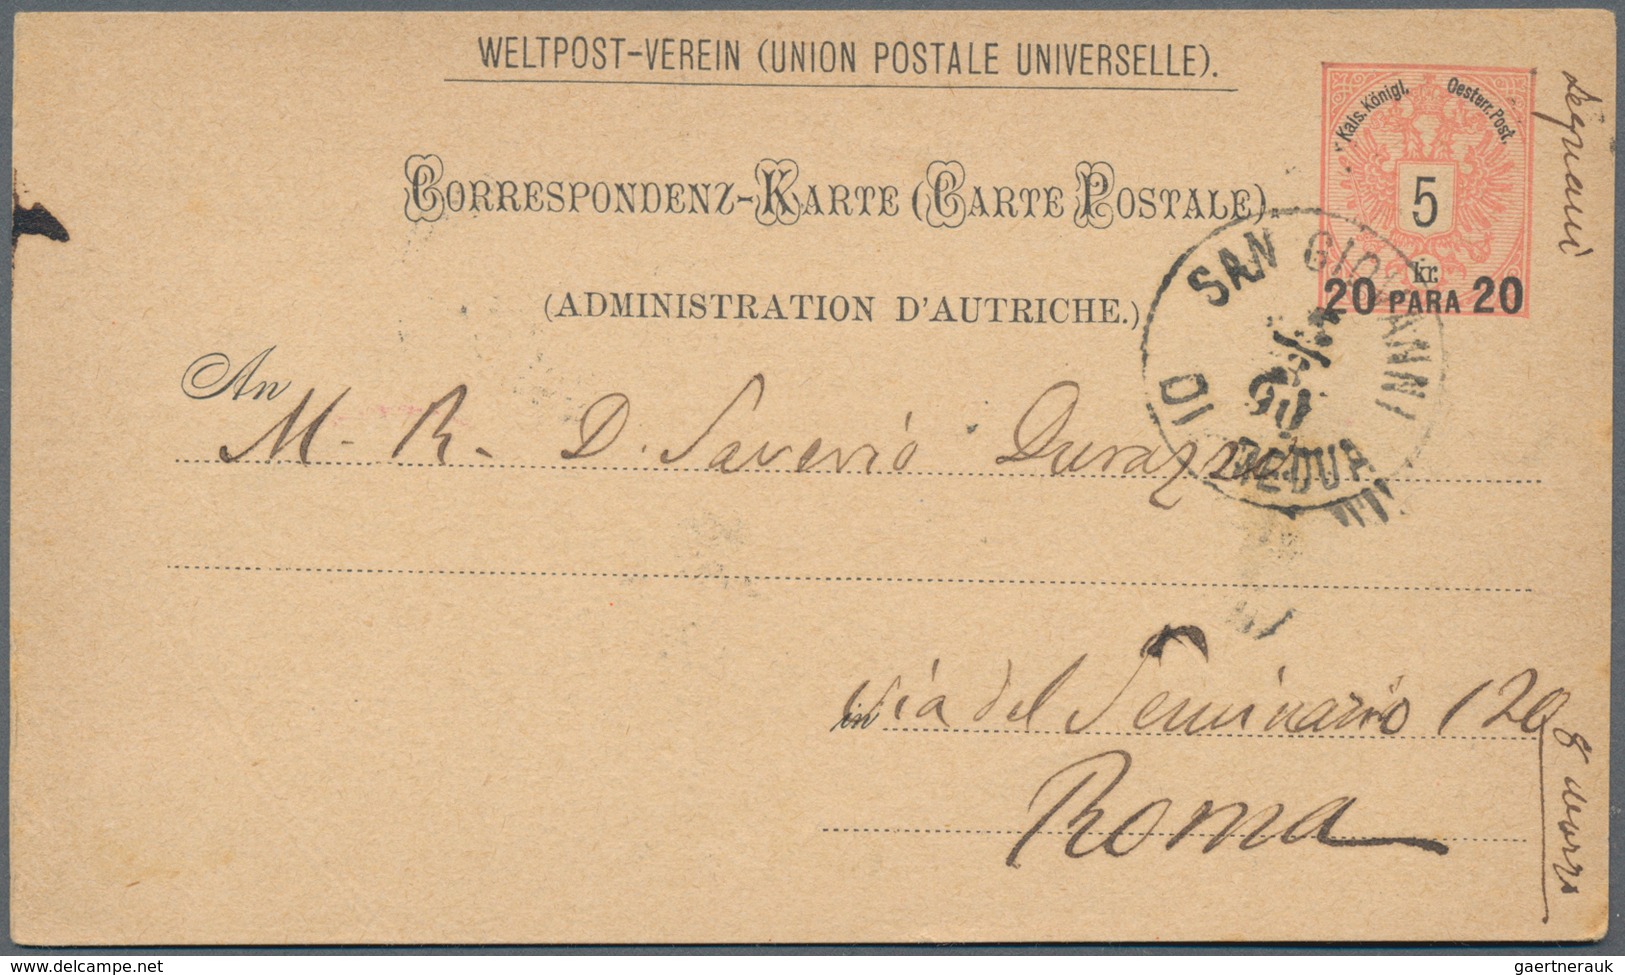 WELTPOST-VEREIN (UNION POSTALE UNIVERSELLE).
Kais. Königl. Oesterr. Post.
5
kr.
20 PARA 20
CORRESPONDENZ-KARTE (CARTE POSTALE).
(ADMINISTRATION D'AUTRICHE.)
SAN GIOVANNI
DI MEDUA
An M. R. D. Saverio Durazzo
in Via del Seminario 120
Roma
delcampe.net
gaertnerauk